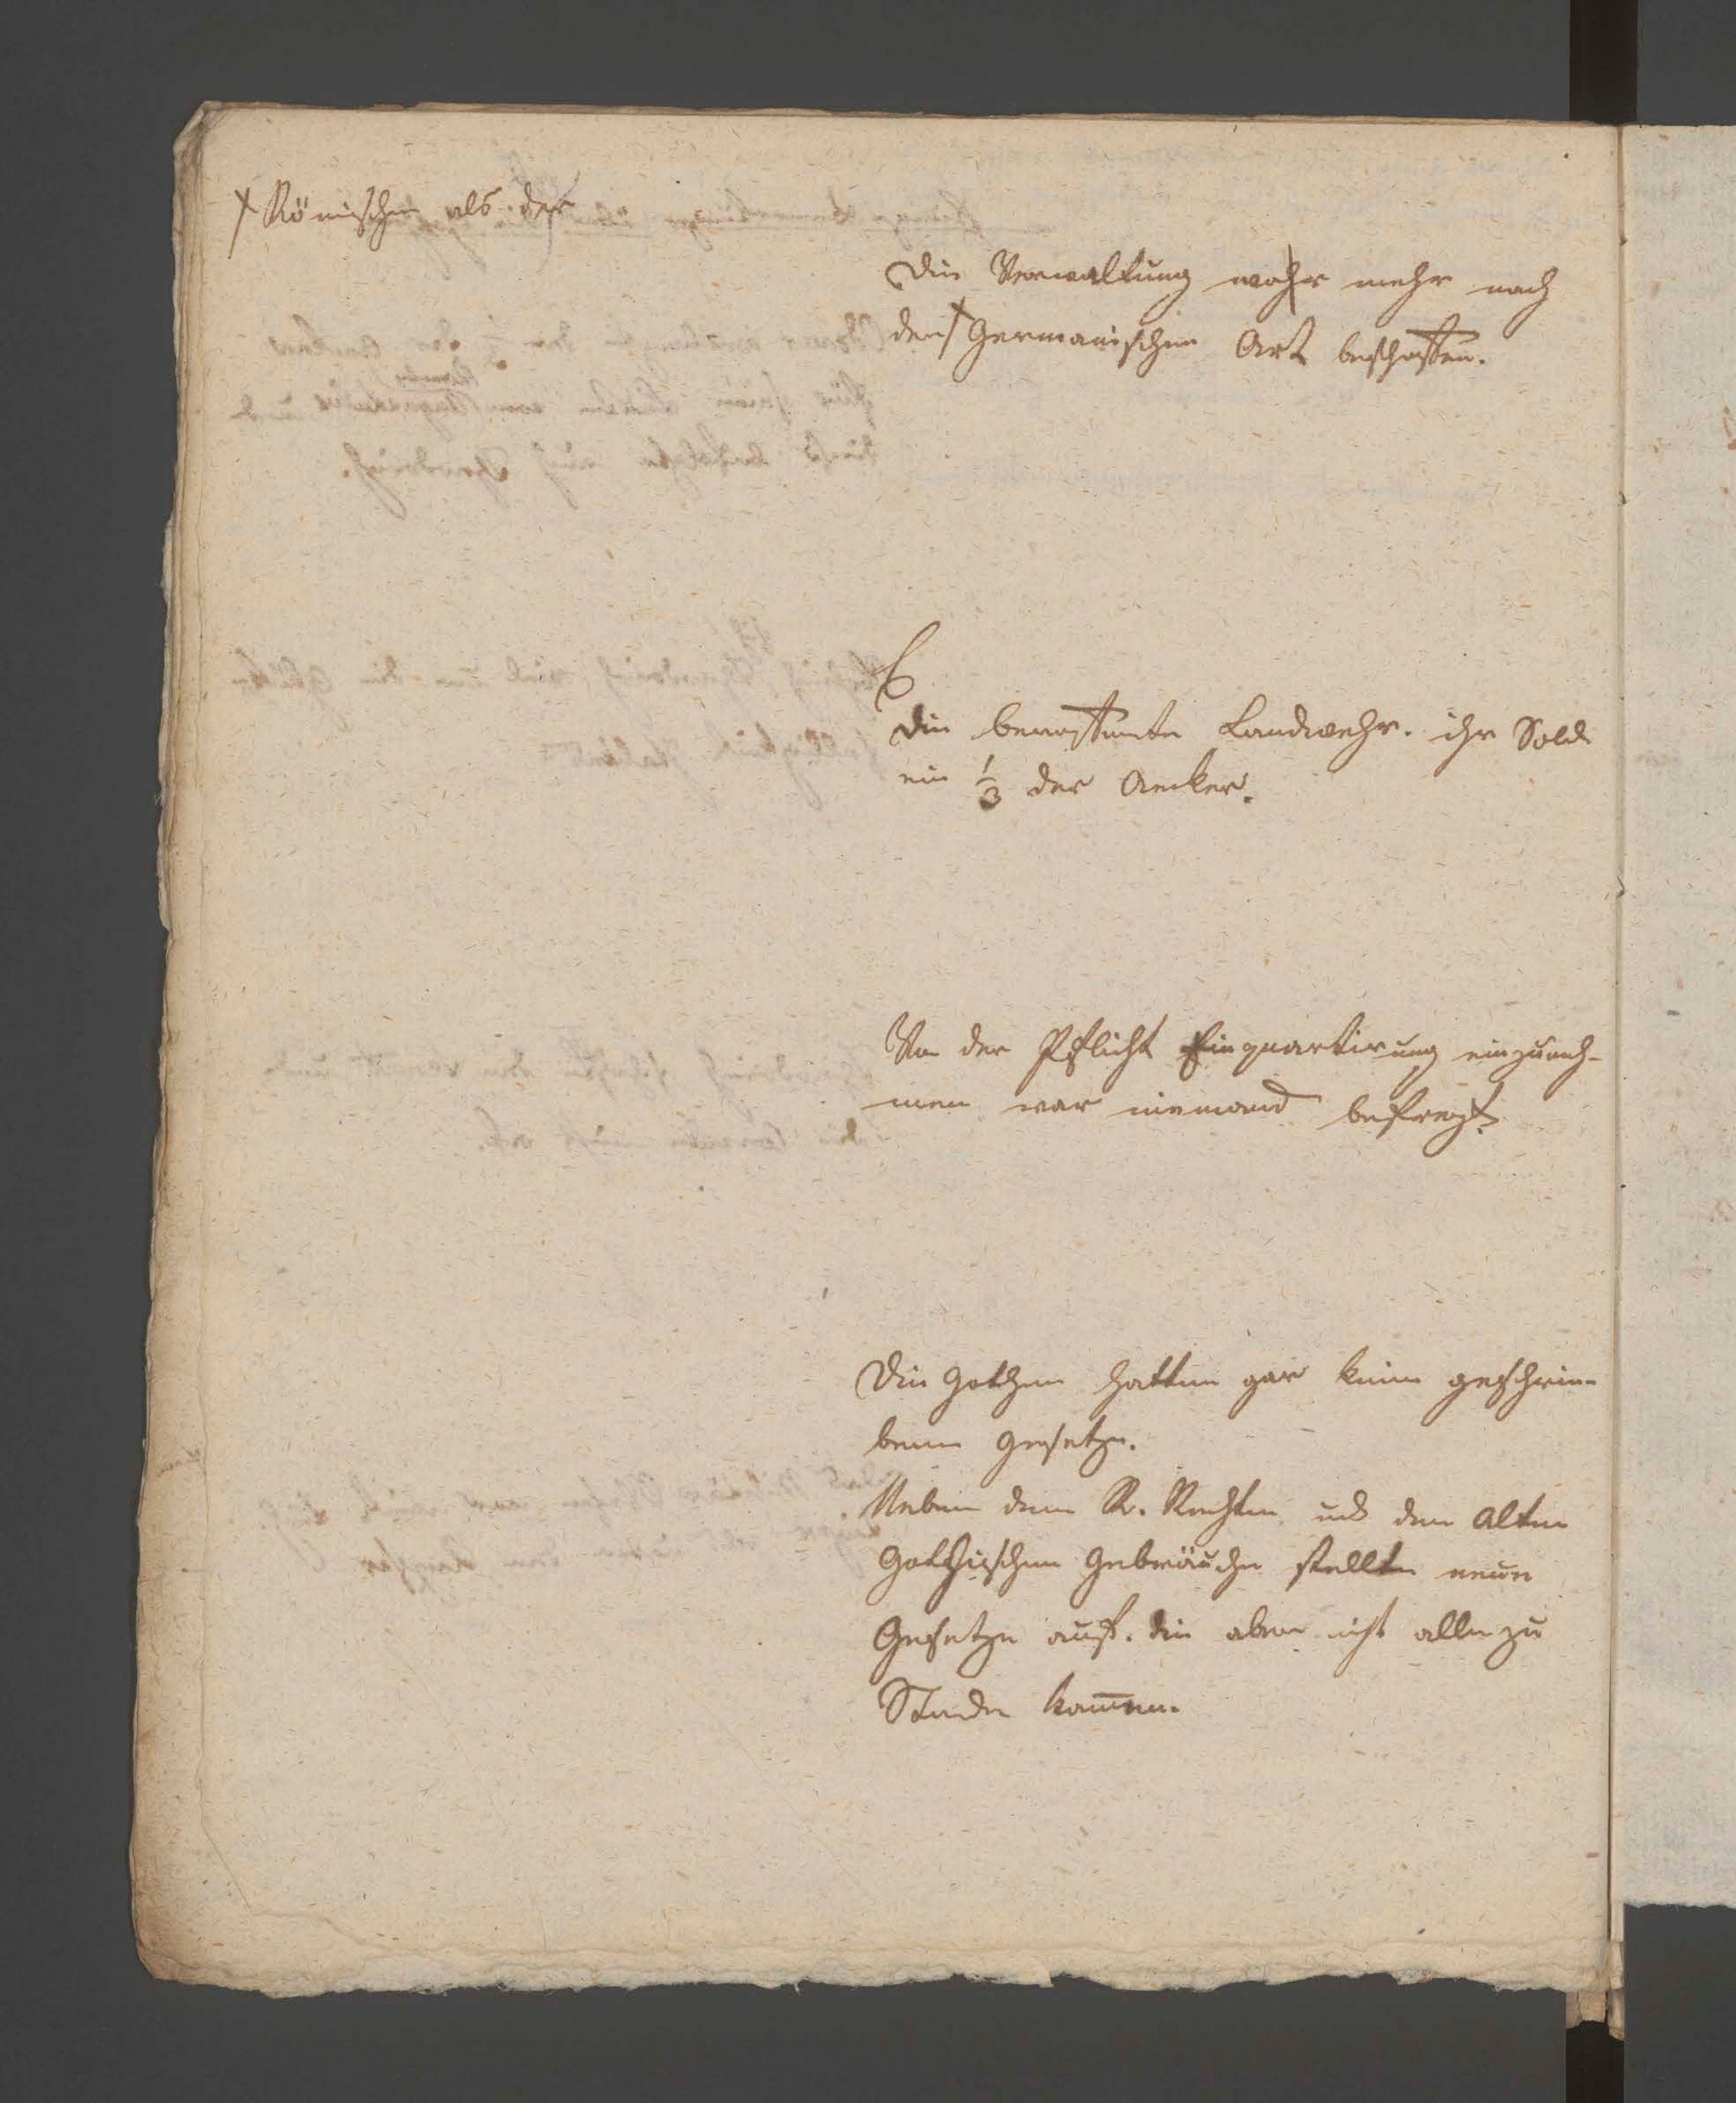 † Römischen als der
Die Verwaltung wahr mehr nach
der † Germanischen Art beschaffen.
Die bewaffnete Landwehr. ihr Sold
ein 1/3 der Aecker.
Von der Pflicht Einquartirung einzuneh-
men war niemand befreyt.
Die Gothen hatten gar keine geschrie-
bene Gesetze.
Neben dem R. Rechten und den alten
Gothischen Gebräuche stellte neue
Gesetze auf. die aber nicht alle zu
Stande kam̅en.